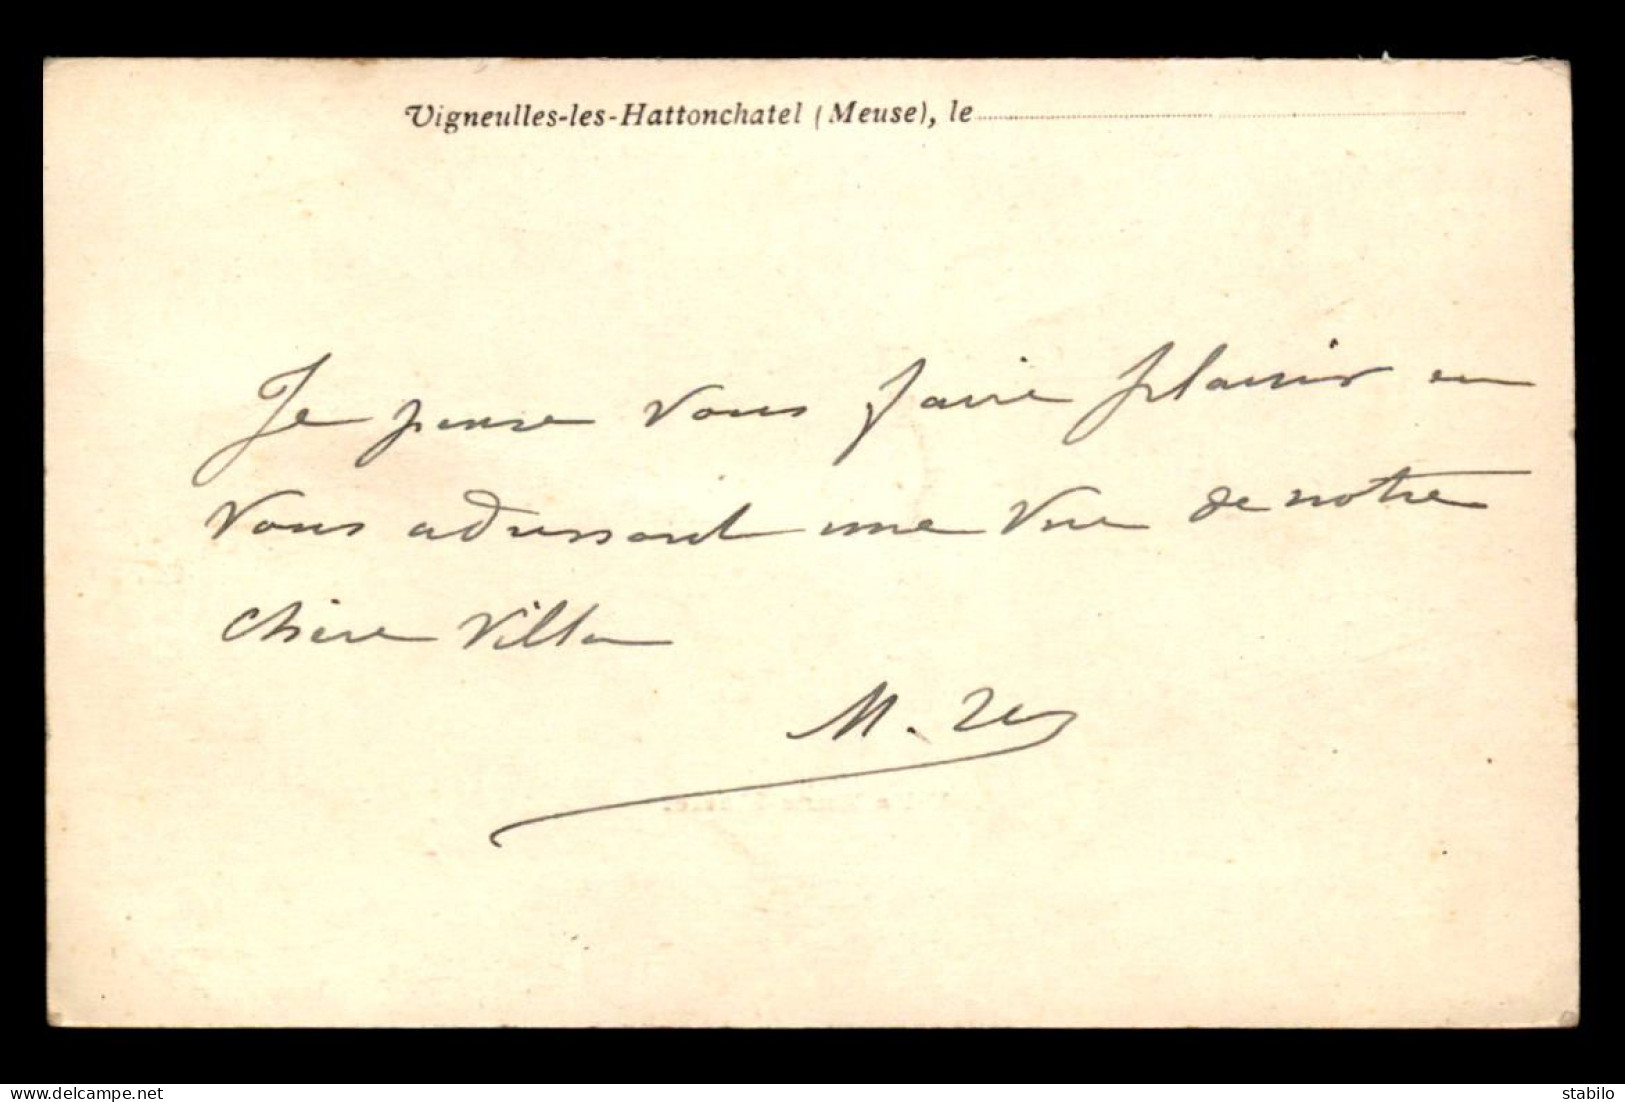 Vigneulles-les-Hattonchatel (Meuse), le
Je pense vous faire plaisir en
vous adressant une vue de notre
chère Villa
M.
https://www.delcampe.net
stabilo